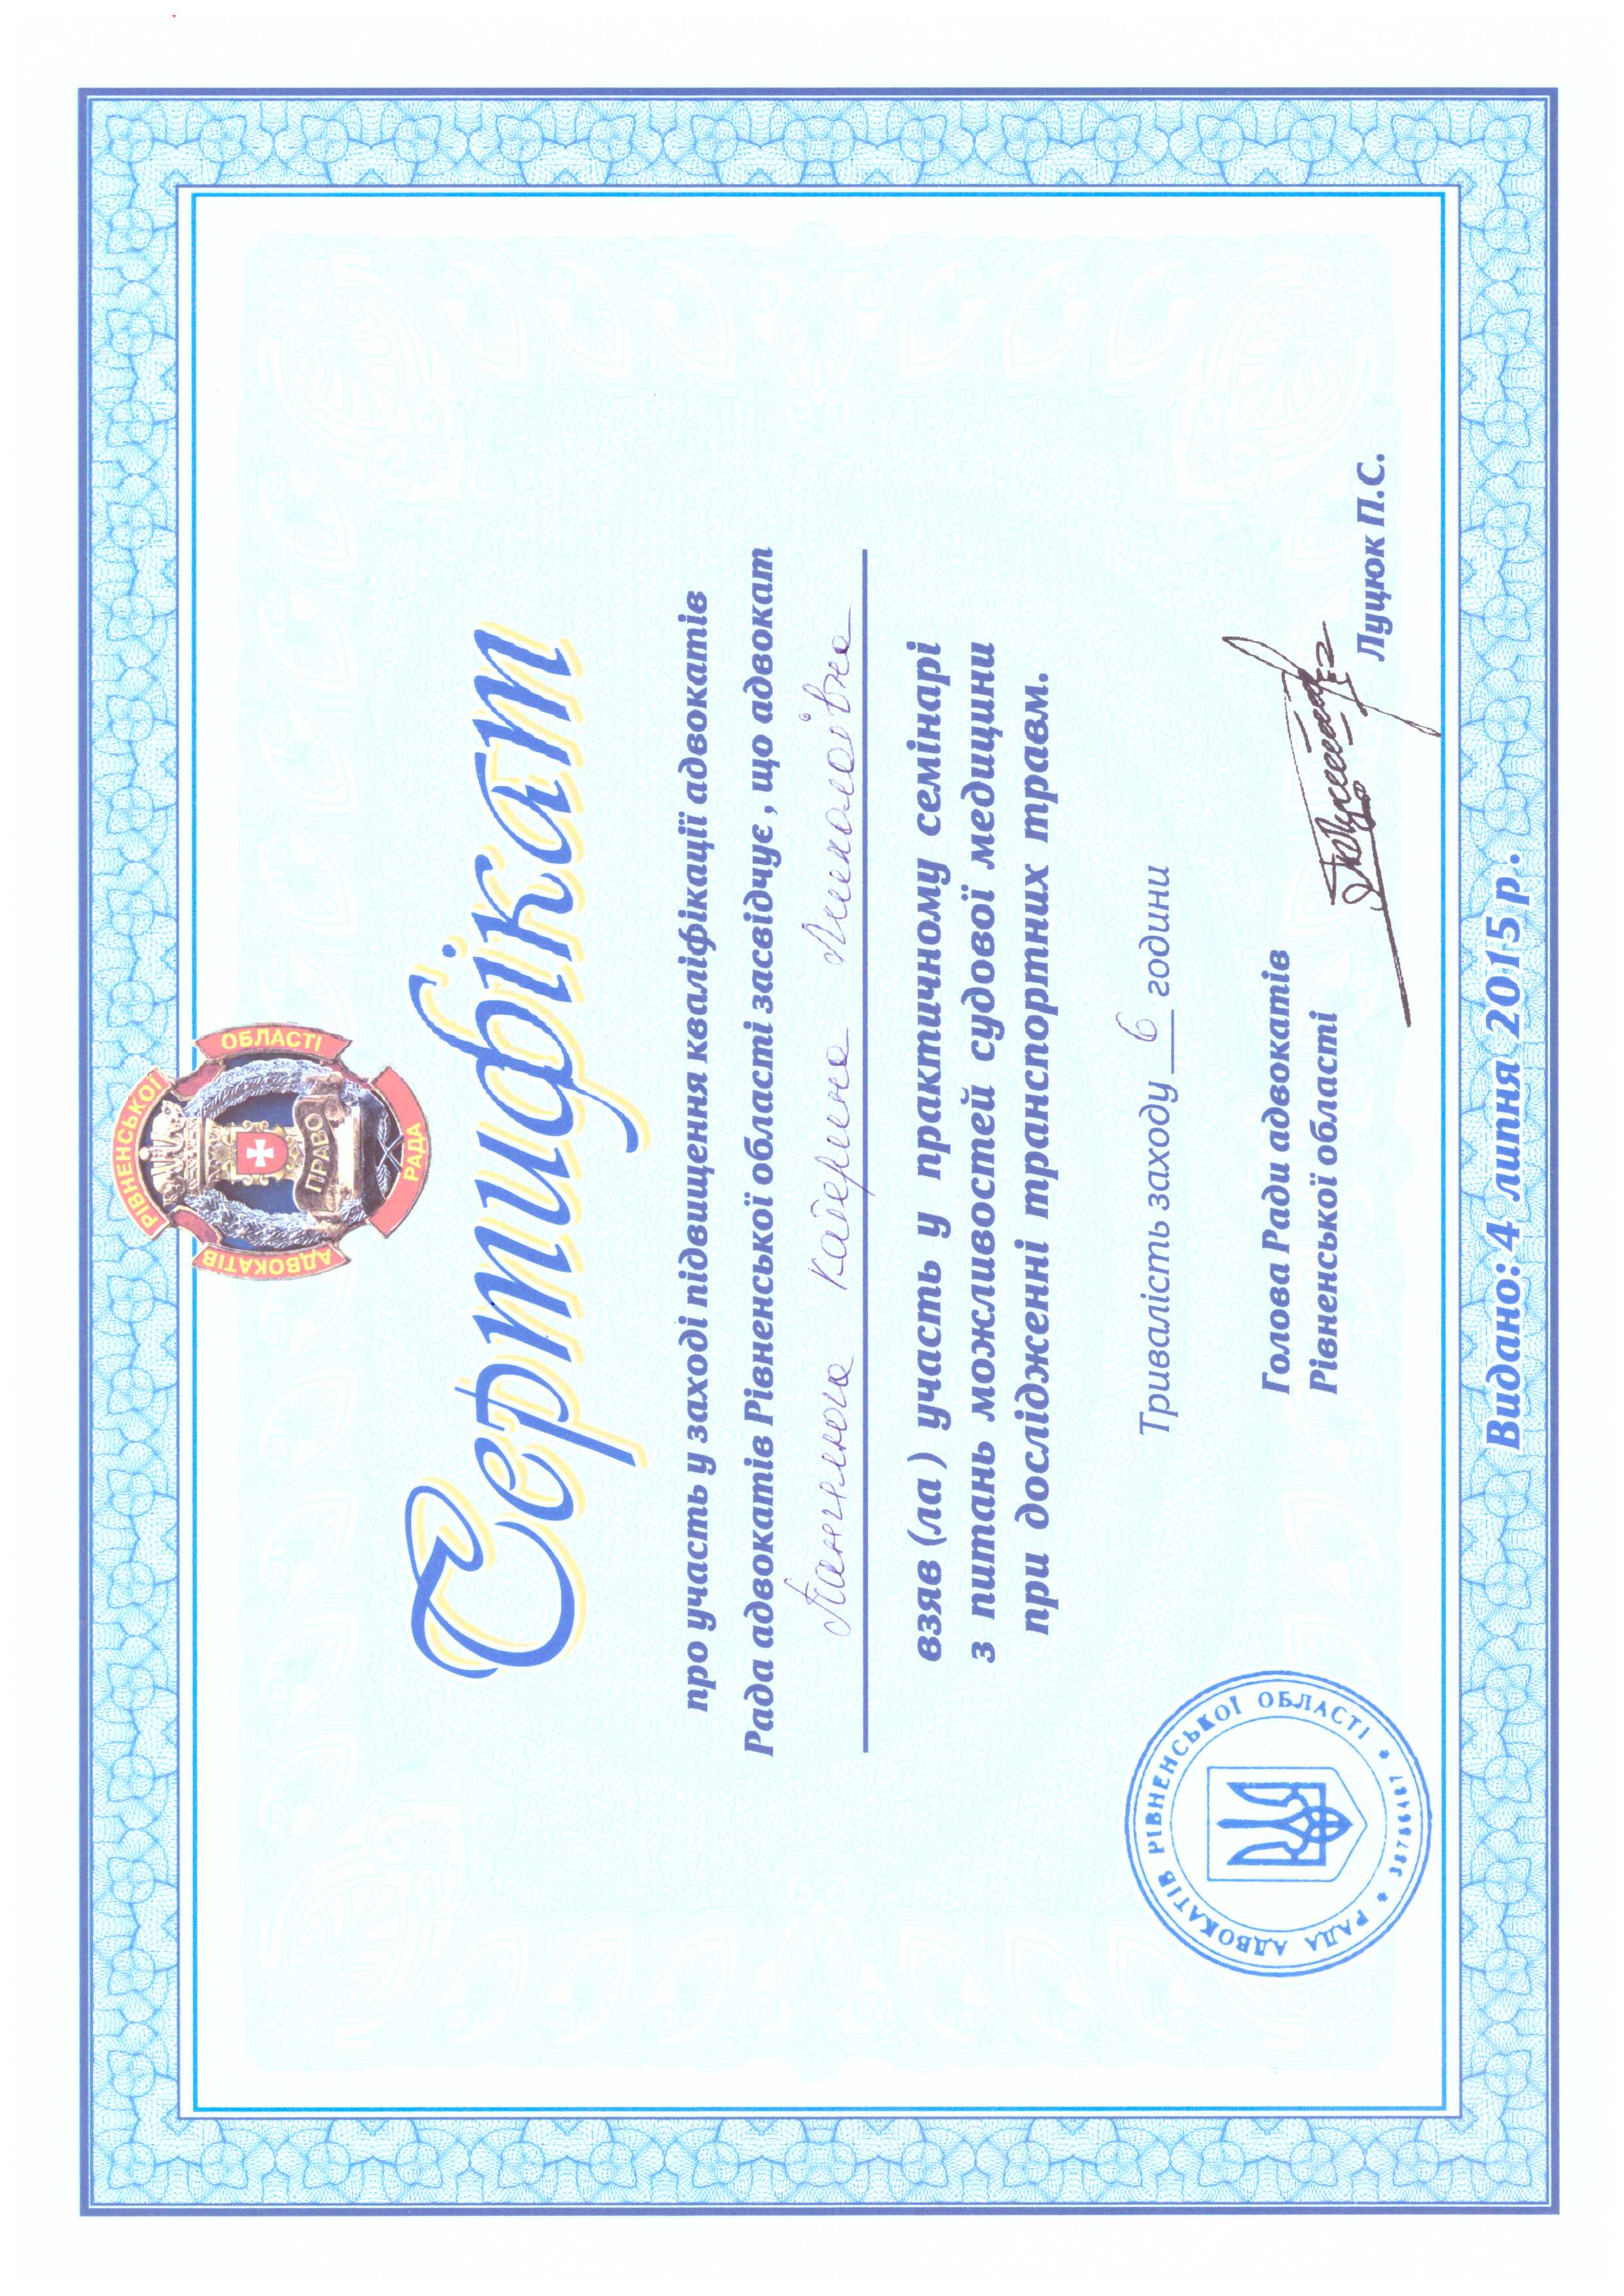 РАДА АДВОКАТІВ РІВНЕНСЬКОЇ ОБЛАСТІ
ПРАВО
Сертифікат
про участь у заході підвищення кваліфікації адвокатів
Рада адвокатів Рівненської області засвідчує , що адвокат
Катерина Миколаївна
взяв (ла ) участь у практичному семінарі
з питань можливостей судової медицини
при дослідженні транспортних травм.
Тривалість заходу 6 години
Голова Ради адвокатів
Рівненської області
Луцюк П.С.
РАДА АДВОКАТІВ РІВНЕНСЬКОЇ ОБЛАСТІ
Видано: 4 липня 2015 р .